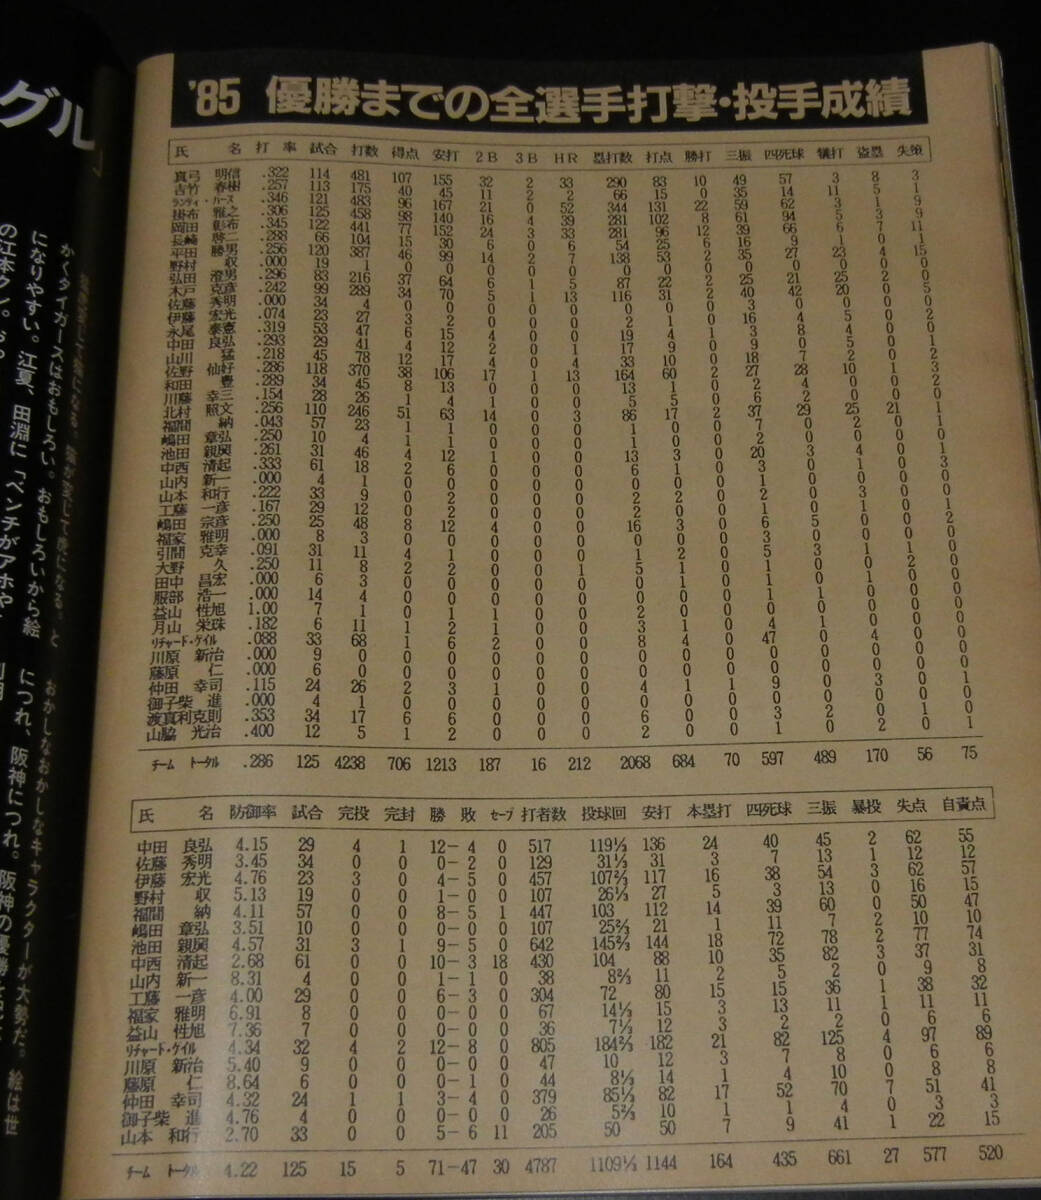 グル
かくタイガースはおもしろい。おもしろいから絵
になりやすい。江夏、田淵に「ベンチがアホや
の江本クン。
おかしなおかしなキャラクターが大勢だ。絵は世
につれ、阪神につれ。
'85 優勝までの全選手打撃・投手成績
氏 名 打率 試合 打数 得点 安打 2B 3B HR 塁打数 打点 勝打 三振 四死球 犠打 盗塁 失策
真弓 明信 .322 114 481 107 155 32 2 33 290 83 10 49 57 3 8 3
吉竹 春樹 .257 113 175 40 45 11 2 2 66 15 0 35 14 11 5 1
ランディ・バース .346 121 483 96 167 21 0 52 344 131 22 59 62 3 1 9
掛布 雅之 .306 125 458 98 140 16 4 39 281 102 8 61 94 5 3 9
岡田 彰布 .345 122 441 77 152 24 3 33 281 96 12 39 66 6 7 11
長崎 啓二 .288 66 104 15 30 6 0 6 54 25 6 16 9 1 0 1
平田 勝男 .256 120 387 46 99 14 2 7 138 53 2 35 27 23 4 15
野村 収 .000 19 1 0 0 0 0 0 0 0 0 0 0 0 0 0
弘田 澄男 .296 83 216 37 64 6 1 5 87 22 2 25 21 25 2 0
木戸 克彦 .242 99 289 34 70 5 1 13 116 31 2 40 42 20 0 5
佐藤 秀明 .000 34 4 0 0 0 0 0 0 0 0 3 0 0 0 0
伊藤 宏光 .074 23 27 3 2 0 0 0 2 1 0 16 4 5 0 2
永尾 泰憲 .319 53 47 6 15 4 0 0 19 4 1 3 8 4 0 0
中田 良弘 .293 29 41 4 12 2 0 1 17 9 0 9 0 5 0 1
山川 猛 .218 45 78 12 17 4 0 4 33 10 0 18 7 2 0 2
佐野 仙好 .286 118 370 38 106 17 1 13 164 60 2 27 28 10 1 3
和田 豊 .289 34 45 8 13 0 0 0 13 1 0 2 4 0 0 2
川藤 幸三 .154 28 26 1 4 1 0 0 5 5 0 6 2 0 0 0
北村 照文 .256 110 246 51 63 14 0 3 86 17 2 37 29 25 21 1
福間 納 .043 57 23 1 1 0 0 0 1 0 0 7 0 2 0 1
嶋田 章弘 .250 10 4 1 1 0 0 0 1 0 0 2 0 0 0 0
池田 親興 .261 31 46 4 12 1 0 0 13 3 0 20 3 4 0 1
中西 清起 .333 61 18 2 6 0 0 0 6 1 0 3 1 0 0 3
山内 新一 .000 4 1 0 0 0 0 0 0 0 0 1 0 0 0 0
山本 和行 .222 33 9 0 2 0 0 0 2 0 0 2 0 3 0 0
工藤 一彦 .167 29 12 0 2 0 0 0 2 2 0 1 0 1 0 0
嶋田 宗彦 .250 25 48 8 12 4 0 0 16 3 0 6 5 0 0 2
福家 雅明 .000 8 3 0 0 0 0 0 0 0 0 0 0 0 0 0
引間 克幸 .091 31 11 4 1 0 0 0 1 2 0 5 3 1 1 0
大野 久 .250 11 8 2 2 0 0 1 5 1 0 1 0 0 2 0
田中 昌宏 .000 6 3 0 0 0 0 0 0 0 0 1 0 1 0 0
服部 浩一 .000 14 4 0 0 0 0 0 0 0 0 1 1 0 0 0
益山 性旭 1.00 7 1 0 1 1 0 0 2 0 0 0 0 0 0 0
月山 栄珠 .182 6 11 1 2 1 0 0 3 1 0 4 1 0 0 0
リチャード・ゲイル .088 33 68 1 6 2 0 0 8 4 0 47 0 4 0 0
川原 新治 .000 9 0 0 0 0 0 0 0 0 0 0 0 0 0 0
藤原 仁 .000 6 0 0 0 0 0 0 0 0 0 0 0 0 0 0
仲田 幸司 .115 24 26 2 3 1 0 0 4 1 1 9 0 3 0 1
御子柴 進 .000 4 1 0 0 0 0 0 0 0 0 0 0 0 0 0
渡真利克則 .353 34 17 6 6 0 0 0 6 0 0 3 2 0 1 0
山脇 光治 .400 12 5 1 2 0 0 0 2 0 0 1 0 2 0 1
チーム トータル .286 125 4238 706 1213 187 16 212 2068 684 70 597 489 170 56 75
氏 名 防御率 試合 完投 完封 勝 敗 セーブ 打者数 投球回 安打 本塁打 四死球 三振 暴投 失点 自責点
中田 良弘 4.15 29 4 1 12－4 0 517 119⅓ 136 24 40 45 2 62 55
佐藤 秀明 3.45 34 0 0 0－2 0 129 31⅓ 31 3 7 13 1 12 12
伊藤 宏光 4.76 23 3 0 4－5 0 457 107⅔ 117 16 38 54 3 62 57
野村 収 5.13 19 0 0 1－0 0 107 26⅓ 27 5 3 13 0 16 15
福間 納 4.11 57 0 0 8－5 1 447 103 112 14 39 60 0 50 47
嶋田 章弘 3.51 10 0 0 0－0 0 107 25⅔ 21 1 11 7 2 10 10
池田 親興 4.57 31 3 1 9－5 0 642 145⅔ 144 18 72 78 2 77 74
中西 清起 2.68 61 0 0 10－3 18 430 104 88 10 35 82 3 37 31
山内 新一 8.31 4 0 0 1－1 0 38 8⅔ 11 2 5 2 0 9 8
工藤 一彦 4.00 29 0 0 6－3 0 304 72 80 15 15 36 1 38 32
福家 雅明 6.91 8 0 0 0－0 0 67 14⅓ 15 3 13 11 1 11 11
益山 性旭 7.36 7 0 0 0－0 0 36 7⅓ 12 3 2 2 0 6 6
リチャード・ゲイル 4.34 32 4 2 12－8 0 805 184⅔ 182 21 82 125 4 97 89
川原 新治 5.40 9 0 0 0－0 0 47 10 12 3 7 8 0 6 6
藤原 仁 8.64 6 0 0 0－1 0 44 8⅓ 14 1 4 10 0 8 8
仲田 幸司 4.32 24 1 1 3－4 0 379 85⅓ 82 17 52 70 7 51 41
御子柴 進 4.76 4 0 0 0－0 0 26 5⅔ 10 1 1 4 0 3 3
山本 和行 2.70 33 0 0 5－6 11 205 50 50 7 9 41 1 22 15
チーム トータル 4.22 125 15 5 71－47 30 4787 1109⅓ 1144 164 435 661 27 577 520